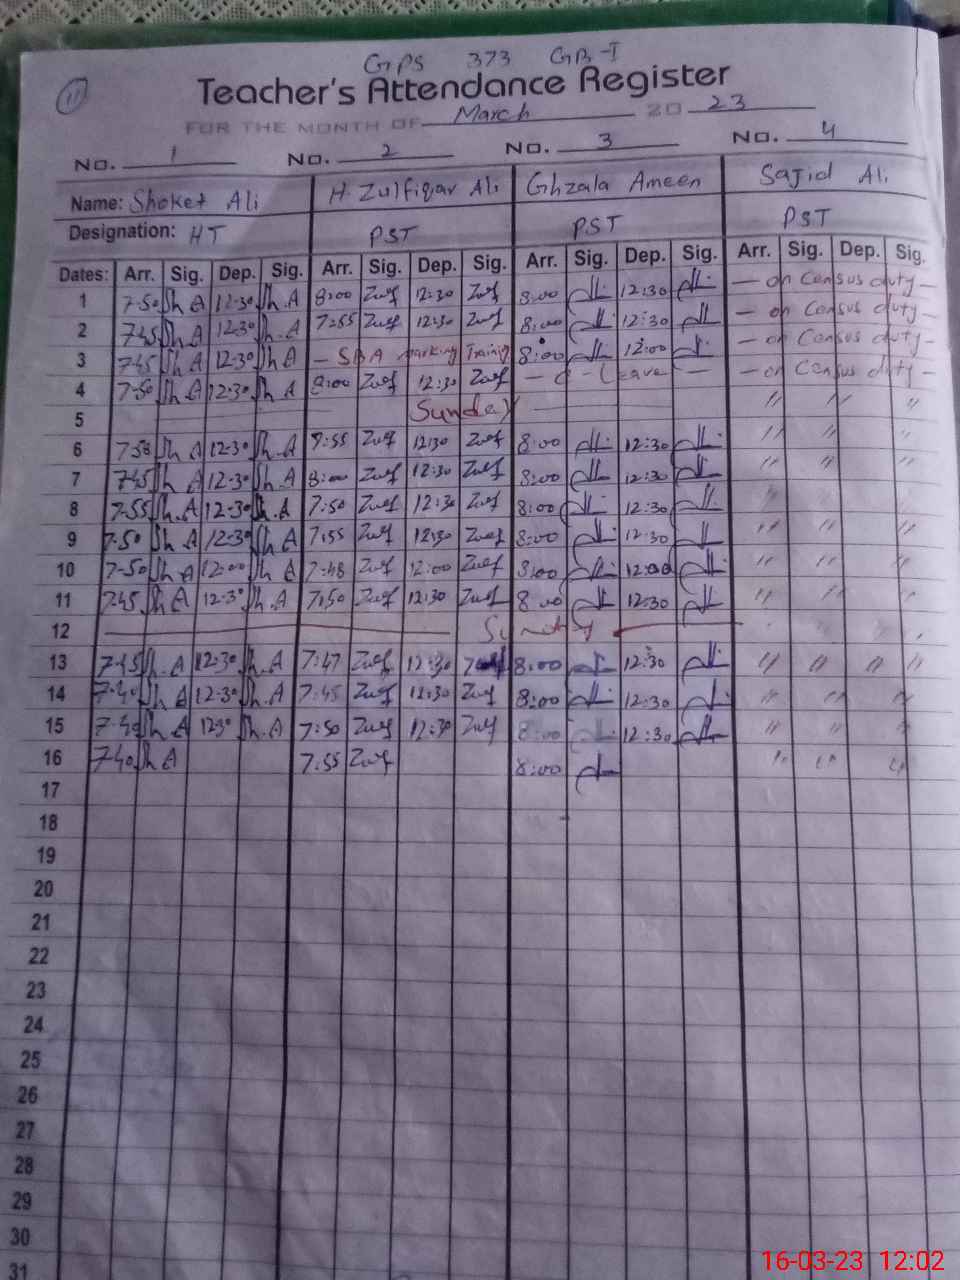 11
GPS 373 GB-I
Teacher's Attendance Register
FOR THE MONTH OF March 20 23
No. 1 No. 2 No. 3 No. 4
Name: Shoket Ali H. Zulfiqar Ali Ghzala Ameen Sajid Ali
Designation: HT PST PST PST
Dates: Arr. Sig. Dep. Sig. Arr. Sig. Dep. Sig. Arr. Sig. Dep. Sig. Arr. Sig. Dep. Sig.
1 7-50 Sh.A 12-30 Sh.A 8:00 Zulf 12:30 Zulf 8:00 12:30 — on Census duty —
2 745 Sh.A 12-30 Sh.A 7:55 Zulf 12:30 Zulf 8:00 12:30 — on Census duty —
3 745 Sh A 12-30 Sh A — SBA marking Training 8:00 12:00 — on Census duty —
4 7-50 Sh.A 12-30 Sh A 8:00 Zulf 12:30 Zulf — C - Leave — — on Census duty —
5 Sunday " " "
6 7.58 Sh A 12-30 Sh.A 7:55 Zulf 12:30 Zulf 8:00 12:30 " " "
7 745 Sh A 12-30 Sh.A 8:00 Zulf 12:30 Zulf 8:00 12:30 " " "
8 7-55 Sh.A 12-30 Sh.A 7:50 Zulf 12:30 Zulf 8:00 12:30 " "
9 7-50 Sh A 12-30 Sh A 7:55 Zulf 12:30 Zulf 8:00 12:30 " " "
10 7-50 Sh A 12-00 Sh A 7:48 Zulf 12:00 Zulf 8:00 12:00 " " "
11 7.45 Sh A 12-30 Sh.A 7:50 Zulf 12:30 Zulf 8:00 12:30 " " "
12 Sunday " "
13 7-45 Sh.A 12-30 Sh.A 7:47 Zulf 12:30 8:00 12:30 " " " "
14 7-40 Sh A 12-30 Sh.A 7:45 Zulf 12:30 Zulf 8:00 12:30 " " "
15 7-40 Sh A 1230 Sh.A 7:50 Zulf 12:30 Zulf 8:00 12:30 " " "
16 7-40 Sh A 7:55 Zulf 8:00 " " "
17
18
19
20
21
22
23
24
25
26
27
28
29
30
31
16-03-23 12:02